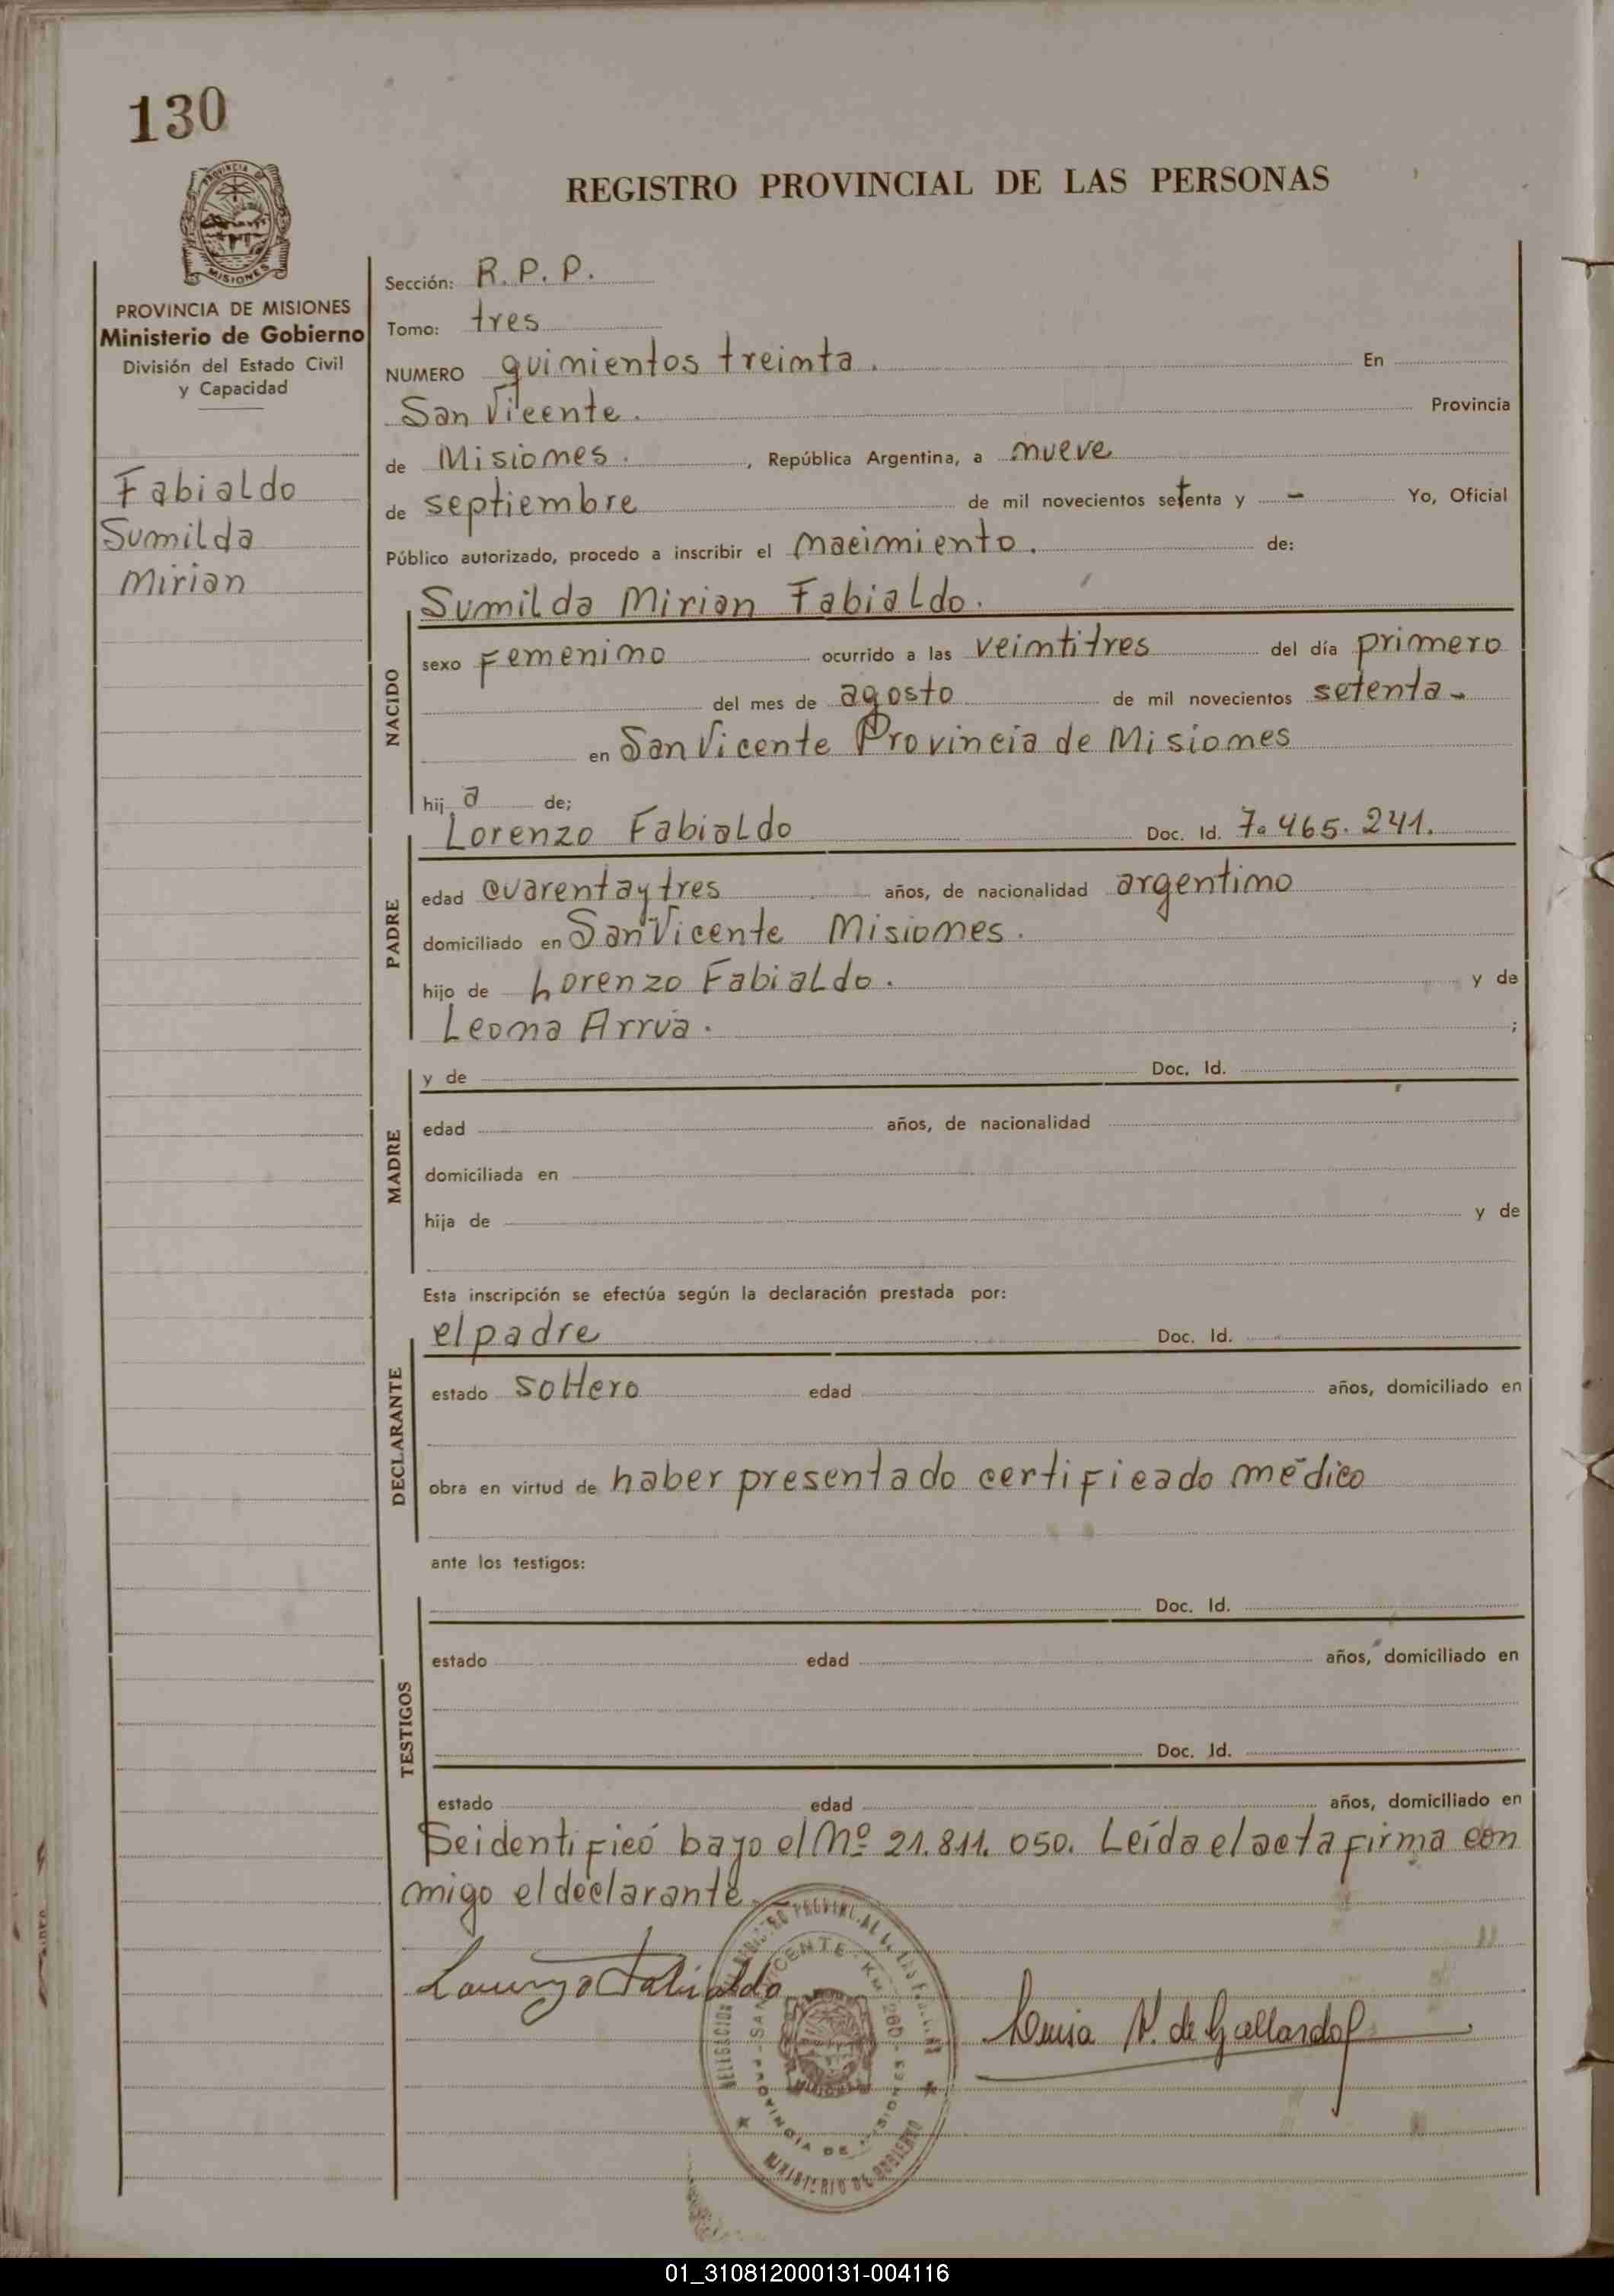 130
REGISTRO PROVINCIAL DE LAS PERSONAS
PROVINCIA DE
MISIONES
PROVINCIA DE MISIONES
Ministerio de Gobierno
División del Estado Civil
y Capacidad
Fabialdo
Sumilda
Mirian
Sección: R.P.P.
Tomo: tres
NUMERO quimientos treimta. En
San Vicente. Provincia
de Misiomes., República Argentina, a mueve
de septiembre de mil novecientos setenta y - Yo, Oficial
Público autorizado, procedo a inscribir el macimiento. de:
NACIDO
Sumilda Mirian Fabialdo.
sexo Femenimo ocurrido a las veimtitres del día primero
del mes de agosto de mil novecientos setenta-
en San Vicente Provincia de Misiomes
hij a de;
PADRE
Lorenzo Fabialdo Doc. Id. 7.465.241.
edad cuarentaytres años, de nacionalidad argentimo
domiciliado en San Vicente Misiomes.
hijo de Lorenzo Fabialdo. y de
Leoma Arrua. ;
MADRE
y de Doc. Id.
edad años, de nacionalidad
domiciliada en
hija de y de
Esta inscripción se efectúa según la declaración prestada por:
DECLARANTE
el padre Doc. Id.
estado soltero edad años, domiciliado en
obra en virtud de haber presentado certificado médico
ante los testigos:
TESTIGOS
Doc. Id.
estado edad años, domiciliado en
Doc. Id.
estado edad años, domiciliado en
Se identificó bajo el Nº 21.811.050. Leída el acta firma con
migo el declarante.-
Lorenzo Fabialdo
Luisa V. de Gallardo
SAN VICENTE - KM 260 -
PROVINCIA DE MISIONES
MINISTERIO DE GOBIERNO
01_310812000131-004116